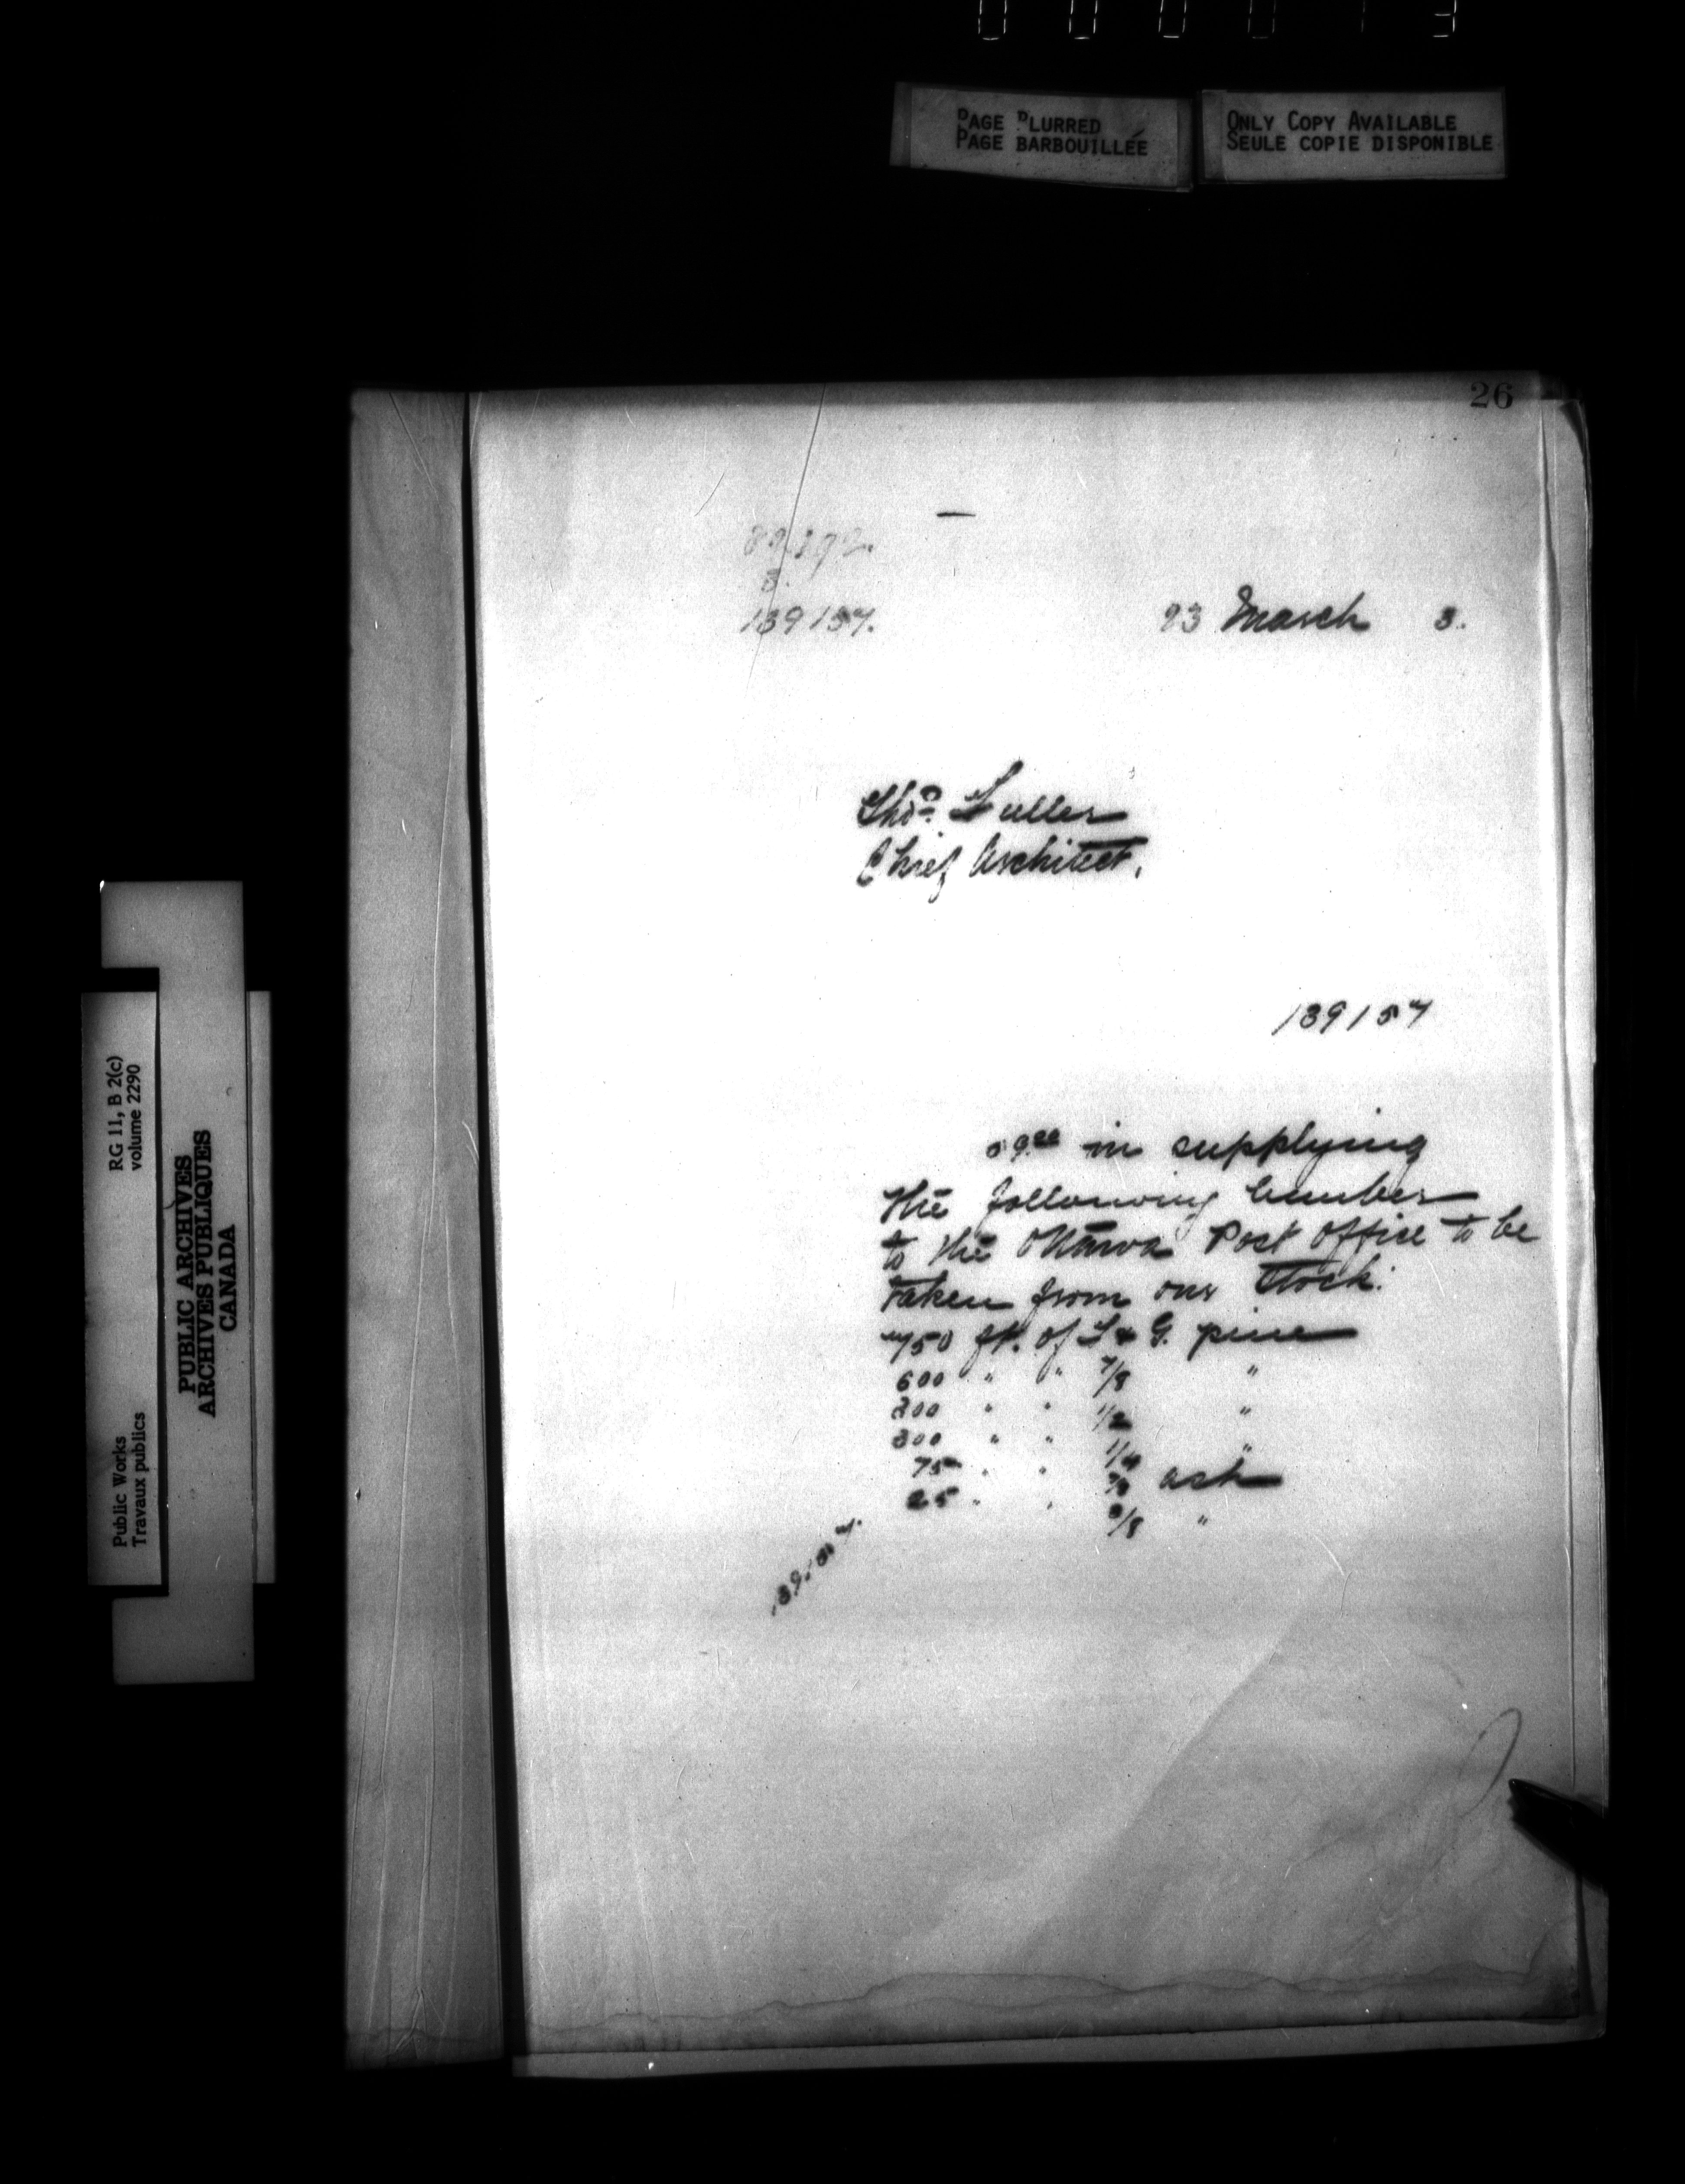 PAGE BLURRED
PAGE BARBOUILLÉE
ONLY COPY AVAILABLE
SEULE COPIE DISPONIBLE
26
139157.
23 March 3.
Thos. Fuller
Chief Architect.
139157
59.00 in supplying
the following lumber
to the Ottawa Post Office to be
taken from our Stock:
750 ft. of T & G. pine
600 " " 7/8 "
300 " " 1/2 "
300 " " 1/4 "
75 " " 7/8 ash
25 " " 3/8 "
139157.
RG 11, B 2(c)
volume 2290
PUBLIC ARCHIVES
ARCHIVES PUBLIQUES
CANADA
Public Works
Travaux publics